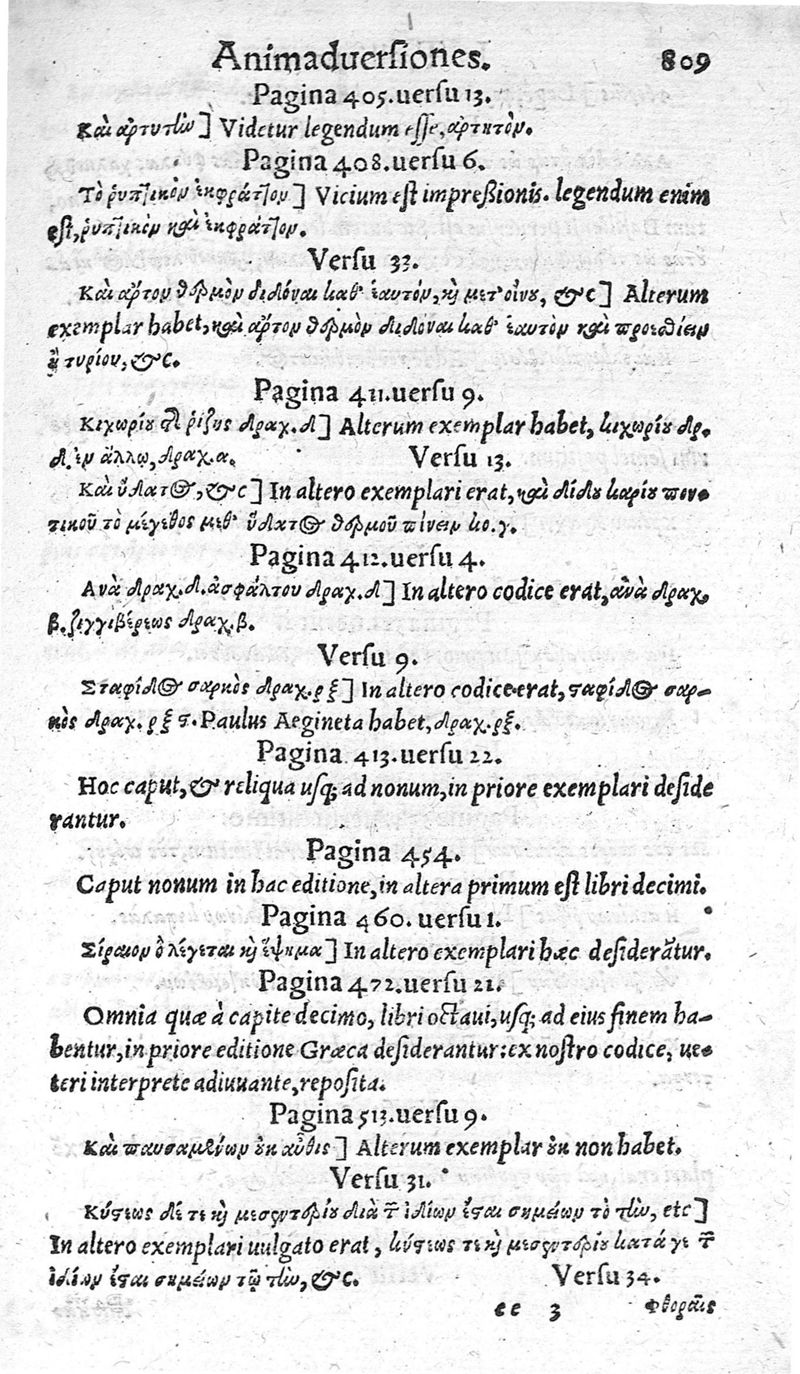 Animaduersiones. 809
Pagina 405. uersu 13.
Καὶ ἀρτυτὴν] Videtur legendum esse, ἀρτητόν.
Pagina 408. uersu 6.
Τὸ ῥυπτικὸν ἐκφράττον] Vicium est impreßionis. legendum enim
est, ῥυπτικὸν καὶ ἐκφράττον.
Versu 33.
Καὶ ἄρτον θερμὸν διδόναι καθ' ἑαυτόν, καὶ μετ' οἴνου, &c] Alterum
exemplar habet, καὶ ἄρτον θερμὸν διδόναι καθ' ἑαυτὸν καὶ προεσθίειν
ἢ τυρίου, &c.
Pagina 411. uersu 9.
Κιχωρίου ῥίζης δραχ. δ] Alterum exemplar habet, κιχωρίου δρ.
δ. ἐν ἄλλῳ, δραχ. α. Versu 13.
Καὶ ὕδατος, &c] In altero exemplari erat, καὶ δίδου καρίου ποντικοῦ
τὸ μέγεθος μεθ' ὕδατος θερμοῦ πίνειν κο. γ.
Pagina 412. uersu 4.
Ἀνὰ δραχ. δ. ἀσφάλτου δραχ. δ] In altero codice erat, ἀνὰ δραχ.
β. ζιγγιβέρεως δραχ. β.
Versu 9.
Σταφίδος σαρκὸς δραχ. ρξ] In altero codice erat, σταφίδος σαρ-
κὸς δραχ. ρξϛ. Paulus Aegineta habet, δραχ. ρξ.
Pagina 413. uersu 22.
Hoc caput, & reliqua usq; ad nonum, in priore exemplari deside
rantur.
Pagina 454.
Caput nonum in hac editione, in altera primum est libri decimi.
Pagina 460. uersu 1.
Σίραιον ὃ λέγεται καὶ ἕψημα] In altero exemplari hæc desiderātur.
Pagina 472. uersu 21.
Omnia quæ à capite decimo, libri octaui, usq; ad eius finem ha-
bentur, in priore editione Græca desiderantur: ex nostro codice, ue-
teri interprete adiuuante, reposita.
Pagina 513. uersu 9.
Καὶ παυσαμένων οὐκ αὖθις] Alterum exemplar οὐκ non habet.
Versu 31.
Κύστεως δέ τι καὶ μεσεντερίου διὰ τῶν ἰδίων ἔσται σημείων τὸ τὴν, etc]
In altero exemplari uulgato erat, κύστεως τι καὶ μεσεντερίου κατά γε τῶν
ἰδίων ἔσται σημείων τῷ τὴν, &c. Versu 34.
ee 3 Φθορᾶς